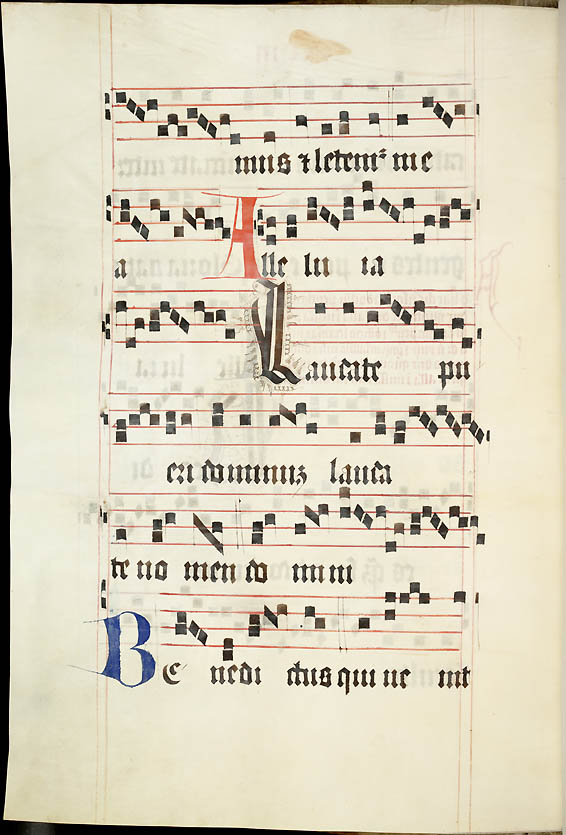 mus ⁊ letemᷣ in e
a Alle lu ia
Laudate pu
eri dominuꝫ lauda
te no men do mini
Be nedi ctus qui ve nit